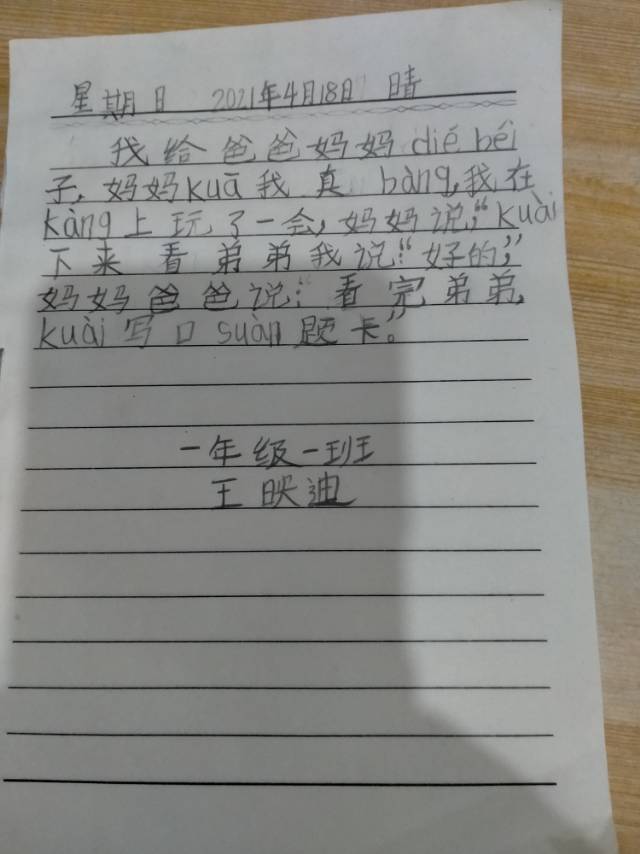 星期日 2021年4月18日 晴
我给爸爸妈妈dié bèi
子,妈妈kuā我真 bàng,我在
kàng上玩了一会,妈妈说:“kuài
下来看弟弟我说:“好的,”
妈妈爸爸说:“看完弟弟,
kuài写口suàn题卡。”
一年级一班
王映迪